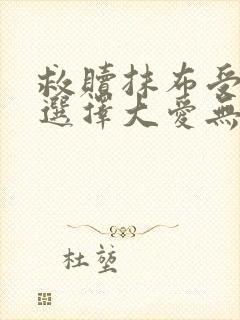 救贖抹布受
選擇大愛無
杜堃